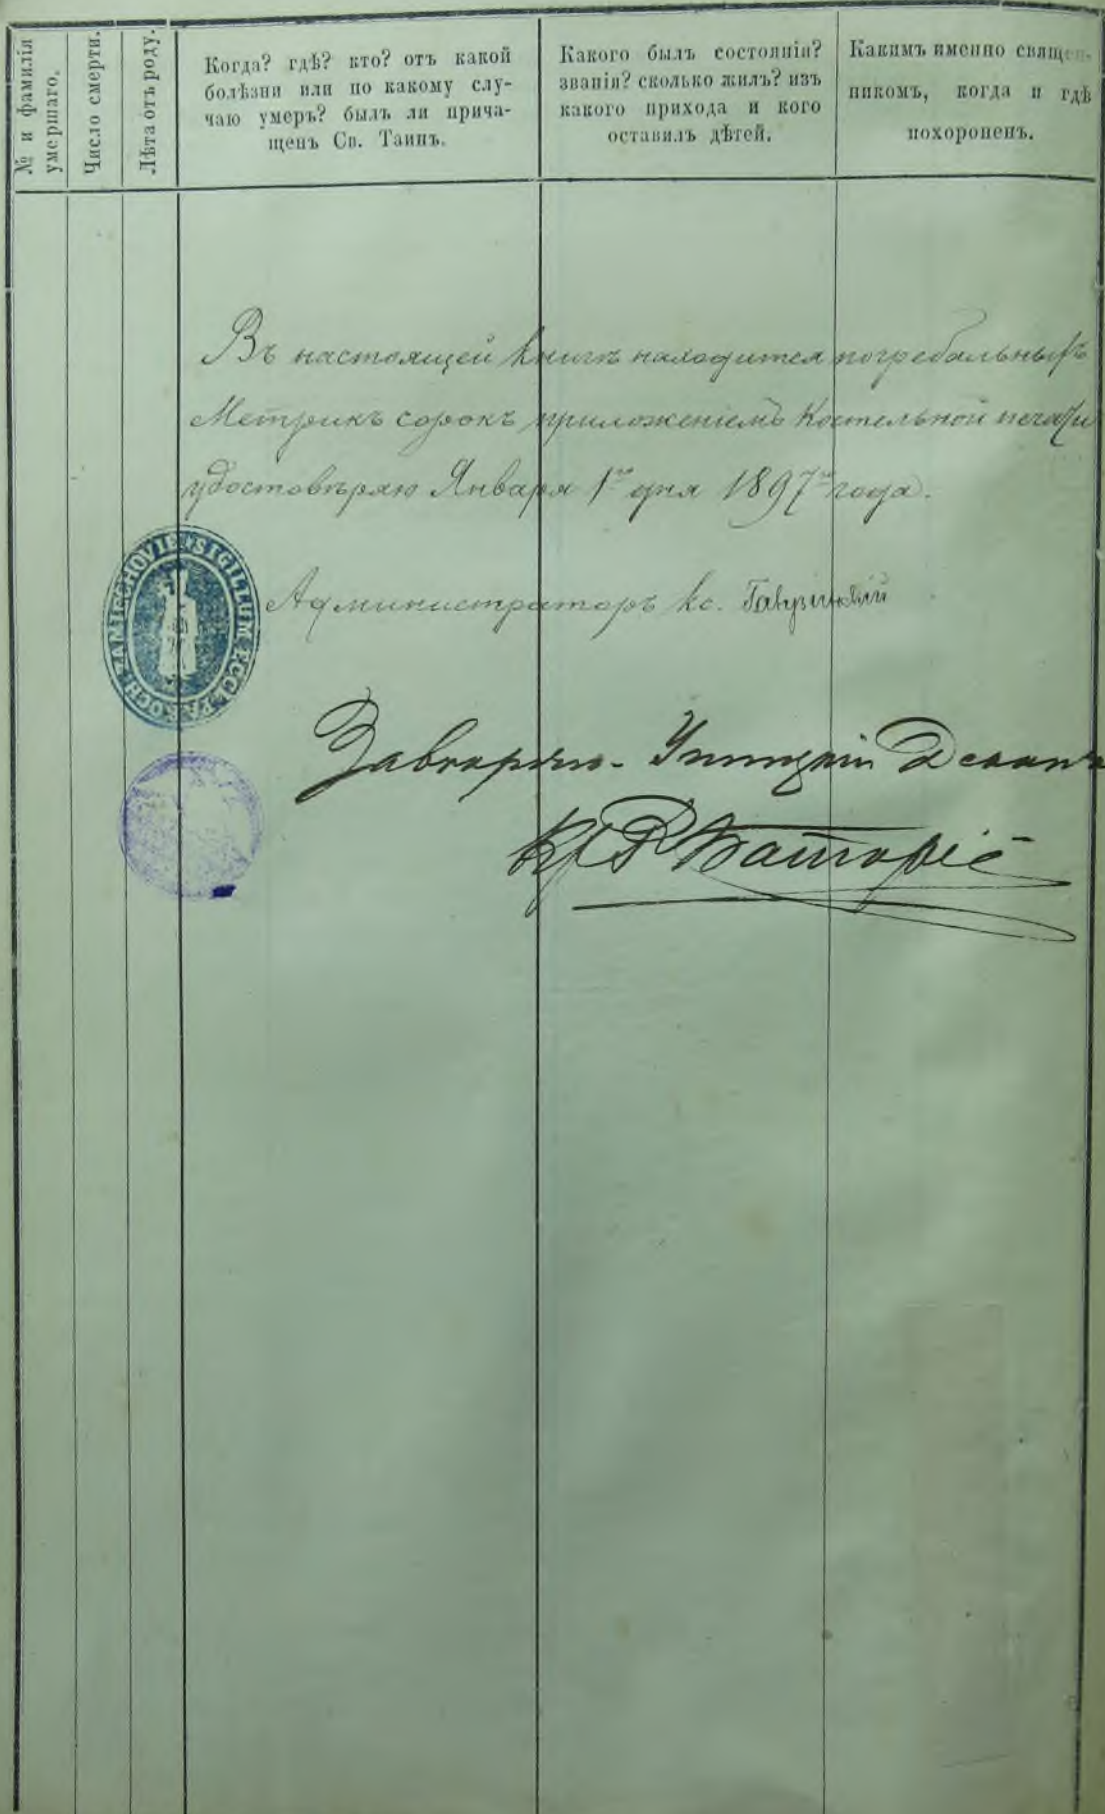 № и фамилія
умершаго.
Число смерти.
Лѣта отъ роду.
Когда? гдѣ? кто? отъ какой
болѣзни или по какому слу-
чаю умеръ? былъ ли прича-
щенъ Св. Таинъ.
Какого былъ состоянія?
званія? сколько жилъ? изъ
какого прихода и кого
оставилъ дѣтей.
Какимъ именно священ-
никомъ, когда и гдѣ
похороненъ.
Въ настоящей книгѣ находится погребальныхъ
Метрикъ сорокъ приложеніемъ Костельной печати
удостовѣряю Января 1го дня 1897го года.
SIGILLUM ECCL. PAROCH. ZAMIECHOVIEN
Администраторъ кс.
Деканъ